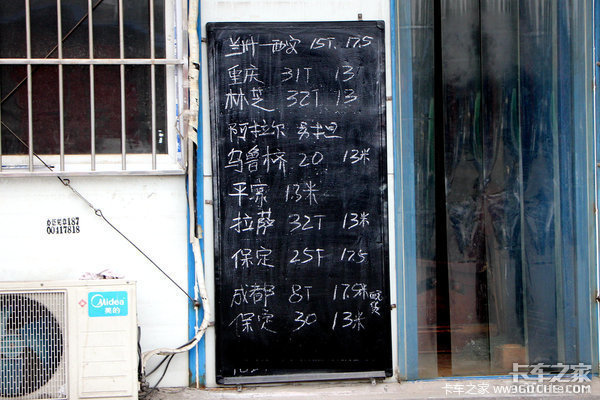 兰州—西安 15T. 17.5
重庆 31T 13
林芝 32T. 13
阿拉尔
乌鲁木桥 20 13米
平凉 13米
拉萨 32T 13米
保定 25T 17.5
成都 8T 17.5米
保定 30 13米
187
00117818
Midea
美的
卡车之家
卡车之家 www.360che.com